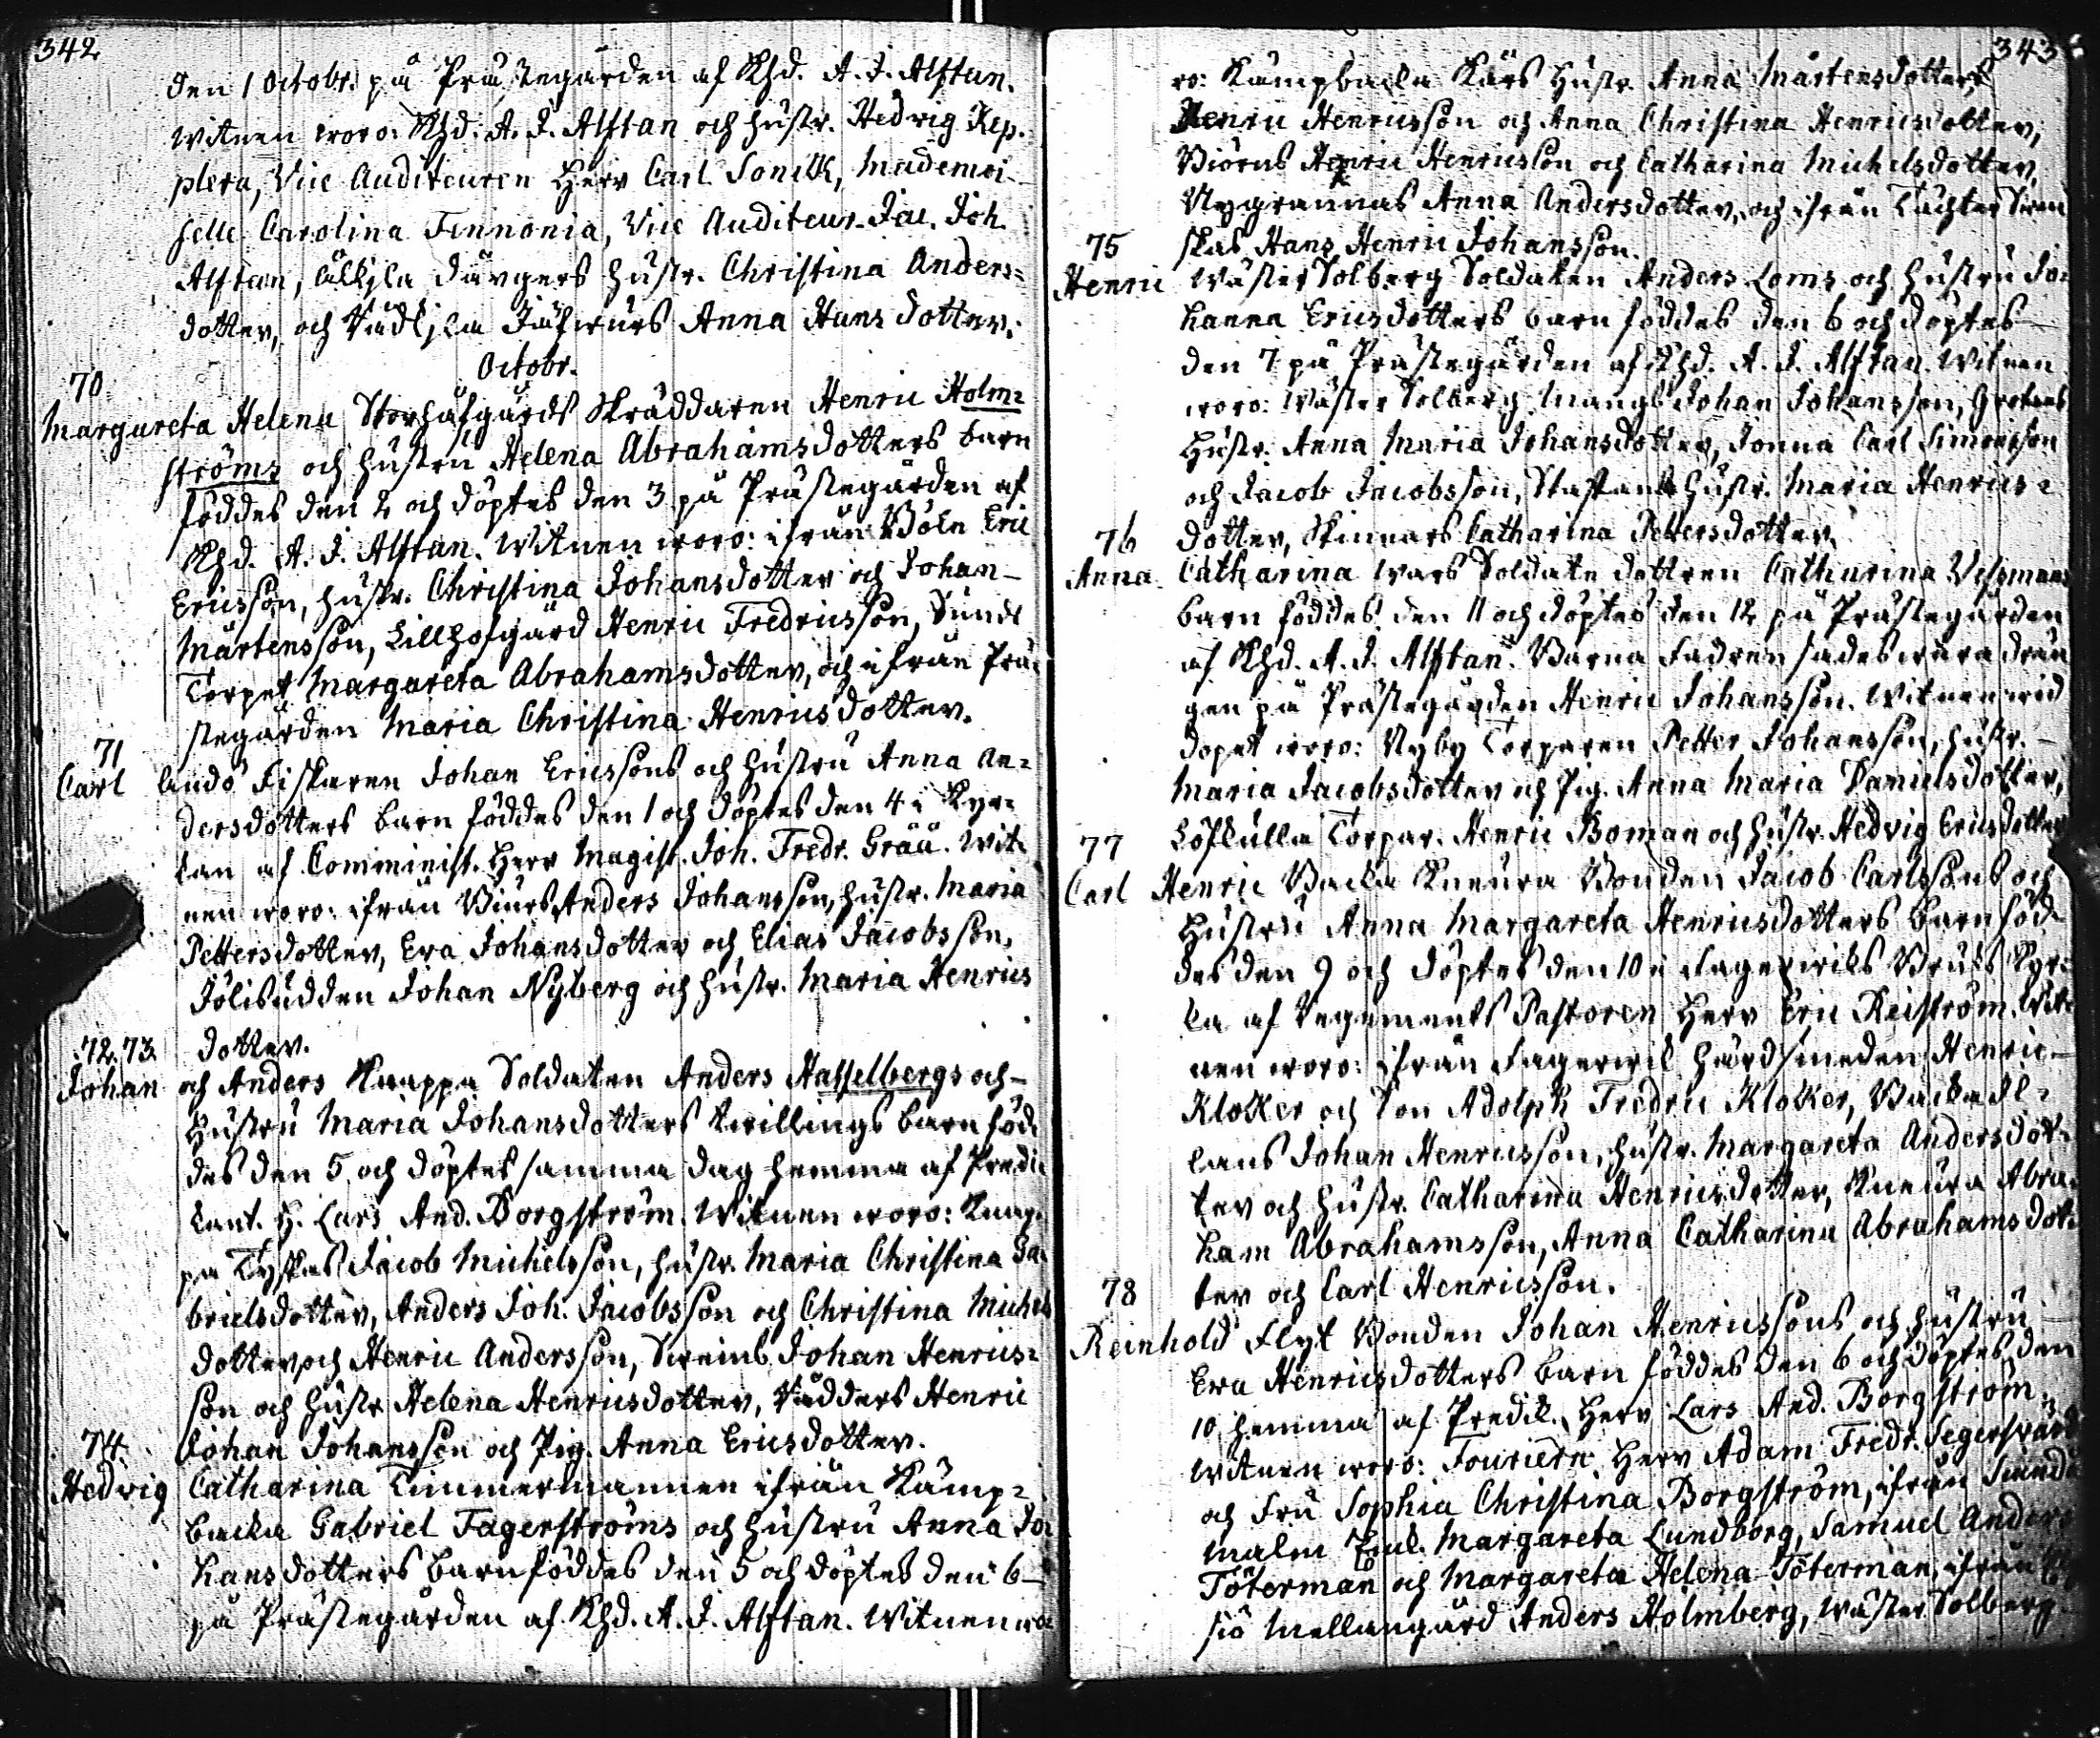 342
den 1 Octobr. på Prästegården af Khd. A. J. Alftan.
Witnen woro: Khd. A. J. Alftan och hustr. Hedvig Kep-
plera, Vice Auditeuren Herr Carl Sonilk, Mademoi-
selle Carolina Fennonia, Vice Auditeur Jac. Joh.
Alftan, Dävgers Hustr. Christina Anders=
dotter, och Anna Hans dotter.
Octobr.
70
Margareta Helena Storhåfgårds Skräddaren Henric Holm=
ströms och hustru Helena Abrahamsdotters barn
föddes den 2 och döptes den 3 på Prästegården af
Khd. A. J. Alftan. Witnen woro: ifrån Böle Eric
Ericsson, hustr. Christina Johansdotter och Johan
Mårtensson, Lillhofgård Henric Fredricsson, Sunds
Torpet Margareta Abrahamsdotter, och ifrån Prä=
stegården Maria Christina Henricsdotter.
71
Carl Andö Fiskaren Johan Ericssons och hustru Anna An=
dersdotters barn föddes den 1 och döptes den 4 i Kyr=
kan af Comminist. Herr Magist. Joh. Fredr. Gråå. Wit=
nen woro: ifrån Anders Johansson, hustr. Maria
Pettersdotter, Eva Johansdotter och Elias Jacobsson,
Jölisudden Johan Nyberg och hustr. Maria Henrics
dotter.
72. 73.
Johan och Anders Knappa Soldaten Anders Hasselbergs och
Hustru Maria Johansdotters twillings barn föd=
des den 5. och döptes samma dag hemma af Predi=
kant. H. Lars And. Borgström. Witnen woro: Knap=
pa Tyskas Jacob Michelsson, hustr. Maria Christina Ga=
brielsdotter, Anders Joh. Jacobsson och Christina Michels
dotter och Henric Andersson, Johan Henrics=
son och hustr Helena Henricsdotter, Vädders Henric
Johan Johansson och Pig. Anna Ericsdotter.
74.
Hedvig Catharina Timmermannen ifrån Kämp=
backa Gabriel Fagerströms och hustru Anna Jo=
hansdotters barn föddes den 5 och döptes den 6
på Prästegården af Khd. A. J. Alftan. Witnen wo
343
ro: Kämpbacka Kärs Hustr. Anna Mårtensdotter,
Henric Henricsson och Anna Christina Henricsdotter,
Björns Henric Henricsson och Catharina Michelsdotter,
Nygrannas Anna Andersdotter, och ifrån Täckter
skas Hans Henric Johansson.
75
Henric Wäster Solberg Soldaten Anders Loms och hustru Jo=
hanna Ericsdotters barn föddes den 6 och döptes
den 7 på Prästegården af Khd. A. J. Alftan. Witnen
woro: Wäster Solberg Mangs Johan Johansson,
Hustr. Anna Maria Johansdotter, Jonna Carl Simonsson
och Jacob Jacobsson, Hustr. Maria Henrics=
dotter, Skinnars Catharina Pettersdotter.
76
Anna Catharina Wars Soldate dottren Catharina
barn föddes den 11 och döptes den 12 på Prästegården
af Khd. A. J. Alftan. Barna Fadren sades wara drän
gen på Prästegården Henric Johansson. Witnen wid
dopet woro: Nyby Torparen Petter Johansson, hustr.
Maria Jacobsdotter och Pig. Anna Maria Danielsdotter,
Löfkulla Torpar. Henric Boman och hustr. Hedvig Ericsdotter
77
Carl Henric Backa Kneura Bonden Jacob Carlssons och
Hustru Anna Margareta Henricsdotters barn föd=
des den 9 och döptes den 10 i Fagerwiks Bruks Kyr=
ka af Regements Pastoren Herr Eric Reiström. Wit=
nen woro: ifrån Fagerwik Härdsmeden Henric
Kloker och Son Adolph Fredric Kloker, Backa
Johan Henricsson, hustr. Margareta Andersdot=
ter och hustr. Catharina Henricsdotter, Kneura Abra=
ham Abrahamsson, Anna Catharina Abrahamsdot=
ter och Carl Henricsson.
78
Reinhold Flyt Bonden Johan Henricssons och hustru
Eva Henricsdotters barn föddes den 6 och döptes den
10 hemma af Predik. Herr Lars And. Borgström.
Witnen woro: Fouriern Herr Adam Fredr. Segersvärd
och Fru Sophia Christina Borgström, ifrån
malm Margareta Lundborg, Samuel Anders
Töterman och Margareta Helena Töterman, ifrån
sjö Mellangård Anders Holmberg, Wäster Solberg